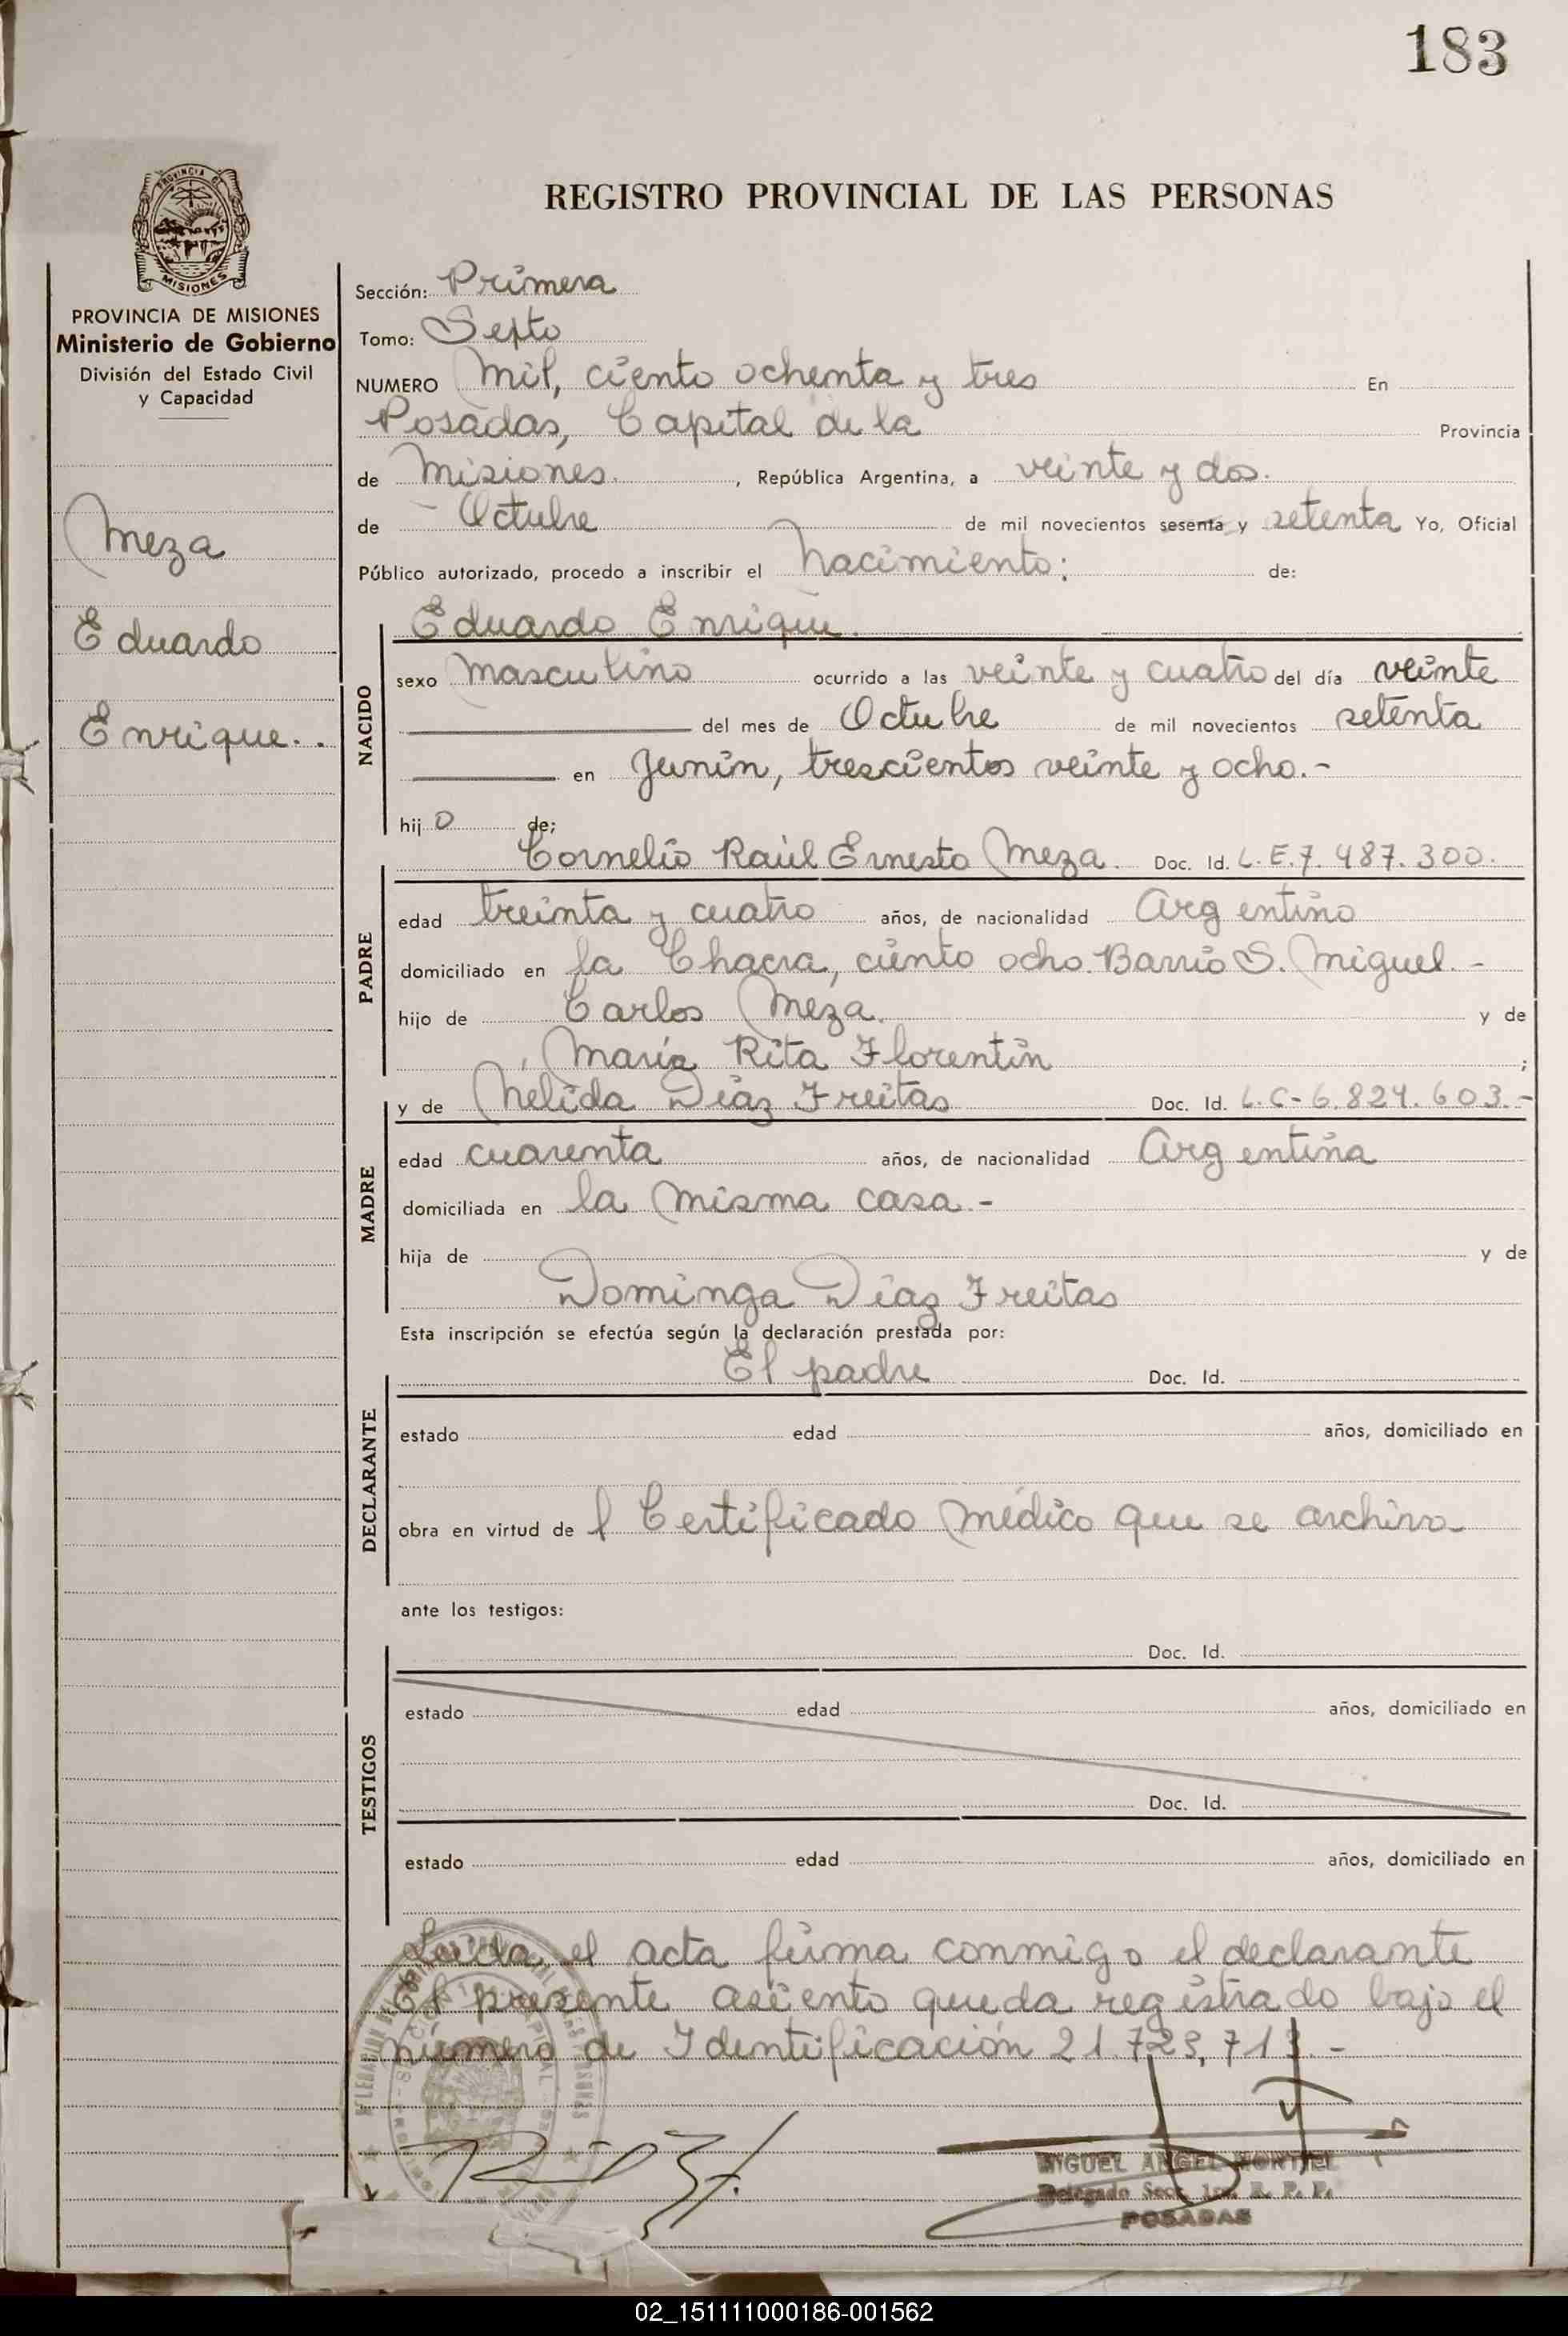 183
REGISTRO PROVINCIAL DE LAS PERSONAS
PROVINCIA DE
MISIONES
PROVINCIA DE MISIONES
Ministerio de Gobierno
División del Estado Civil
y Capacidad
Meza
Eduardo
Enrique..
Sección: Primera
Tomo: Septo
NUMERO Mil, ciento ochenta y tres En
Posadas, Capital de la Provincia
de Misiones. , República Argentina, a veinte y dos.
de Octubre de mil novecientos sesenta y setenta Yo, Oficial
Público autorizado, procedo a inscribir el Nacimiento: de:
Eduardo Enrique.
NACIDO
sexo Masculino ocurrido a las veinte y cuatro del día veinte
del mes de Octubre de mil novecientos setenta
en Junín, trescientos veinte y ocho.-
hijo de;
Cornelio Raúl Ernesto Meza. Doc. Id. L.E.7.487.300.
PADRE
edad treinta y cuatro años, de nacionalidad Argentino
domiciliado en la Chacra, ciento ocho. Barrio S. Miguel.-
hijo de Carlos Meza. y de
María Rita Florentín ;
y de Nelida Díaz Freitas Doc. Id. L.C-6.824.603.-
MADRE
edad cuarenta años, de nacionalidad Argentina
domiciliada en la misma casa.-
hija de y de
Dominga Díaz Freitas
Esta inscripción se efectúa según la declaración prestada por:
El padre Doc. Id.
DECLARANTE
estado edad años, domiciliado en
obra en virtud de l Certificado médico que se archiva
ante los testigos:
Doc. Id.
TESTIGOS
estado edad años, domiciliado en
Doc. Id.
estado edad años, domiciliado en
Leida el acta firma conmigo el declarante
El presente asiento queda registrado bajo el
número de Identificación 21.723,713.-
MIGUEL ANGEL MONTIEL
Delegado Secc. 1ra. R. P. P.
POSADAS
02_151111000186-001562